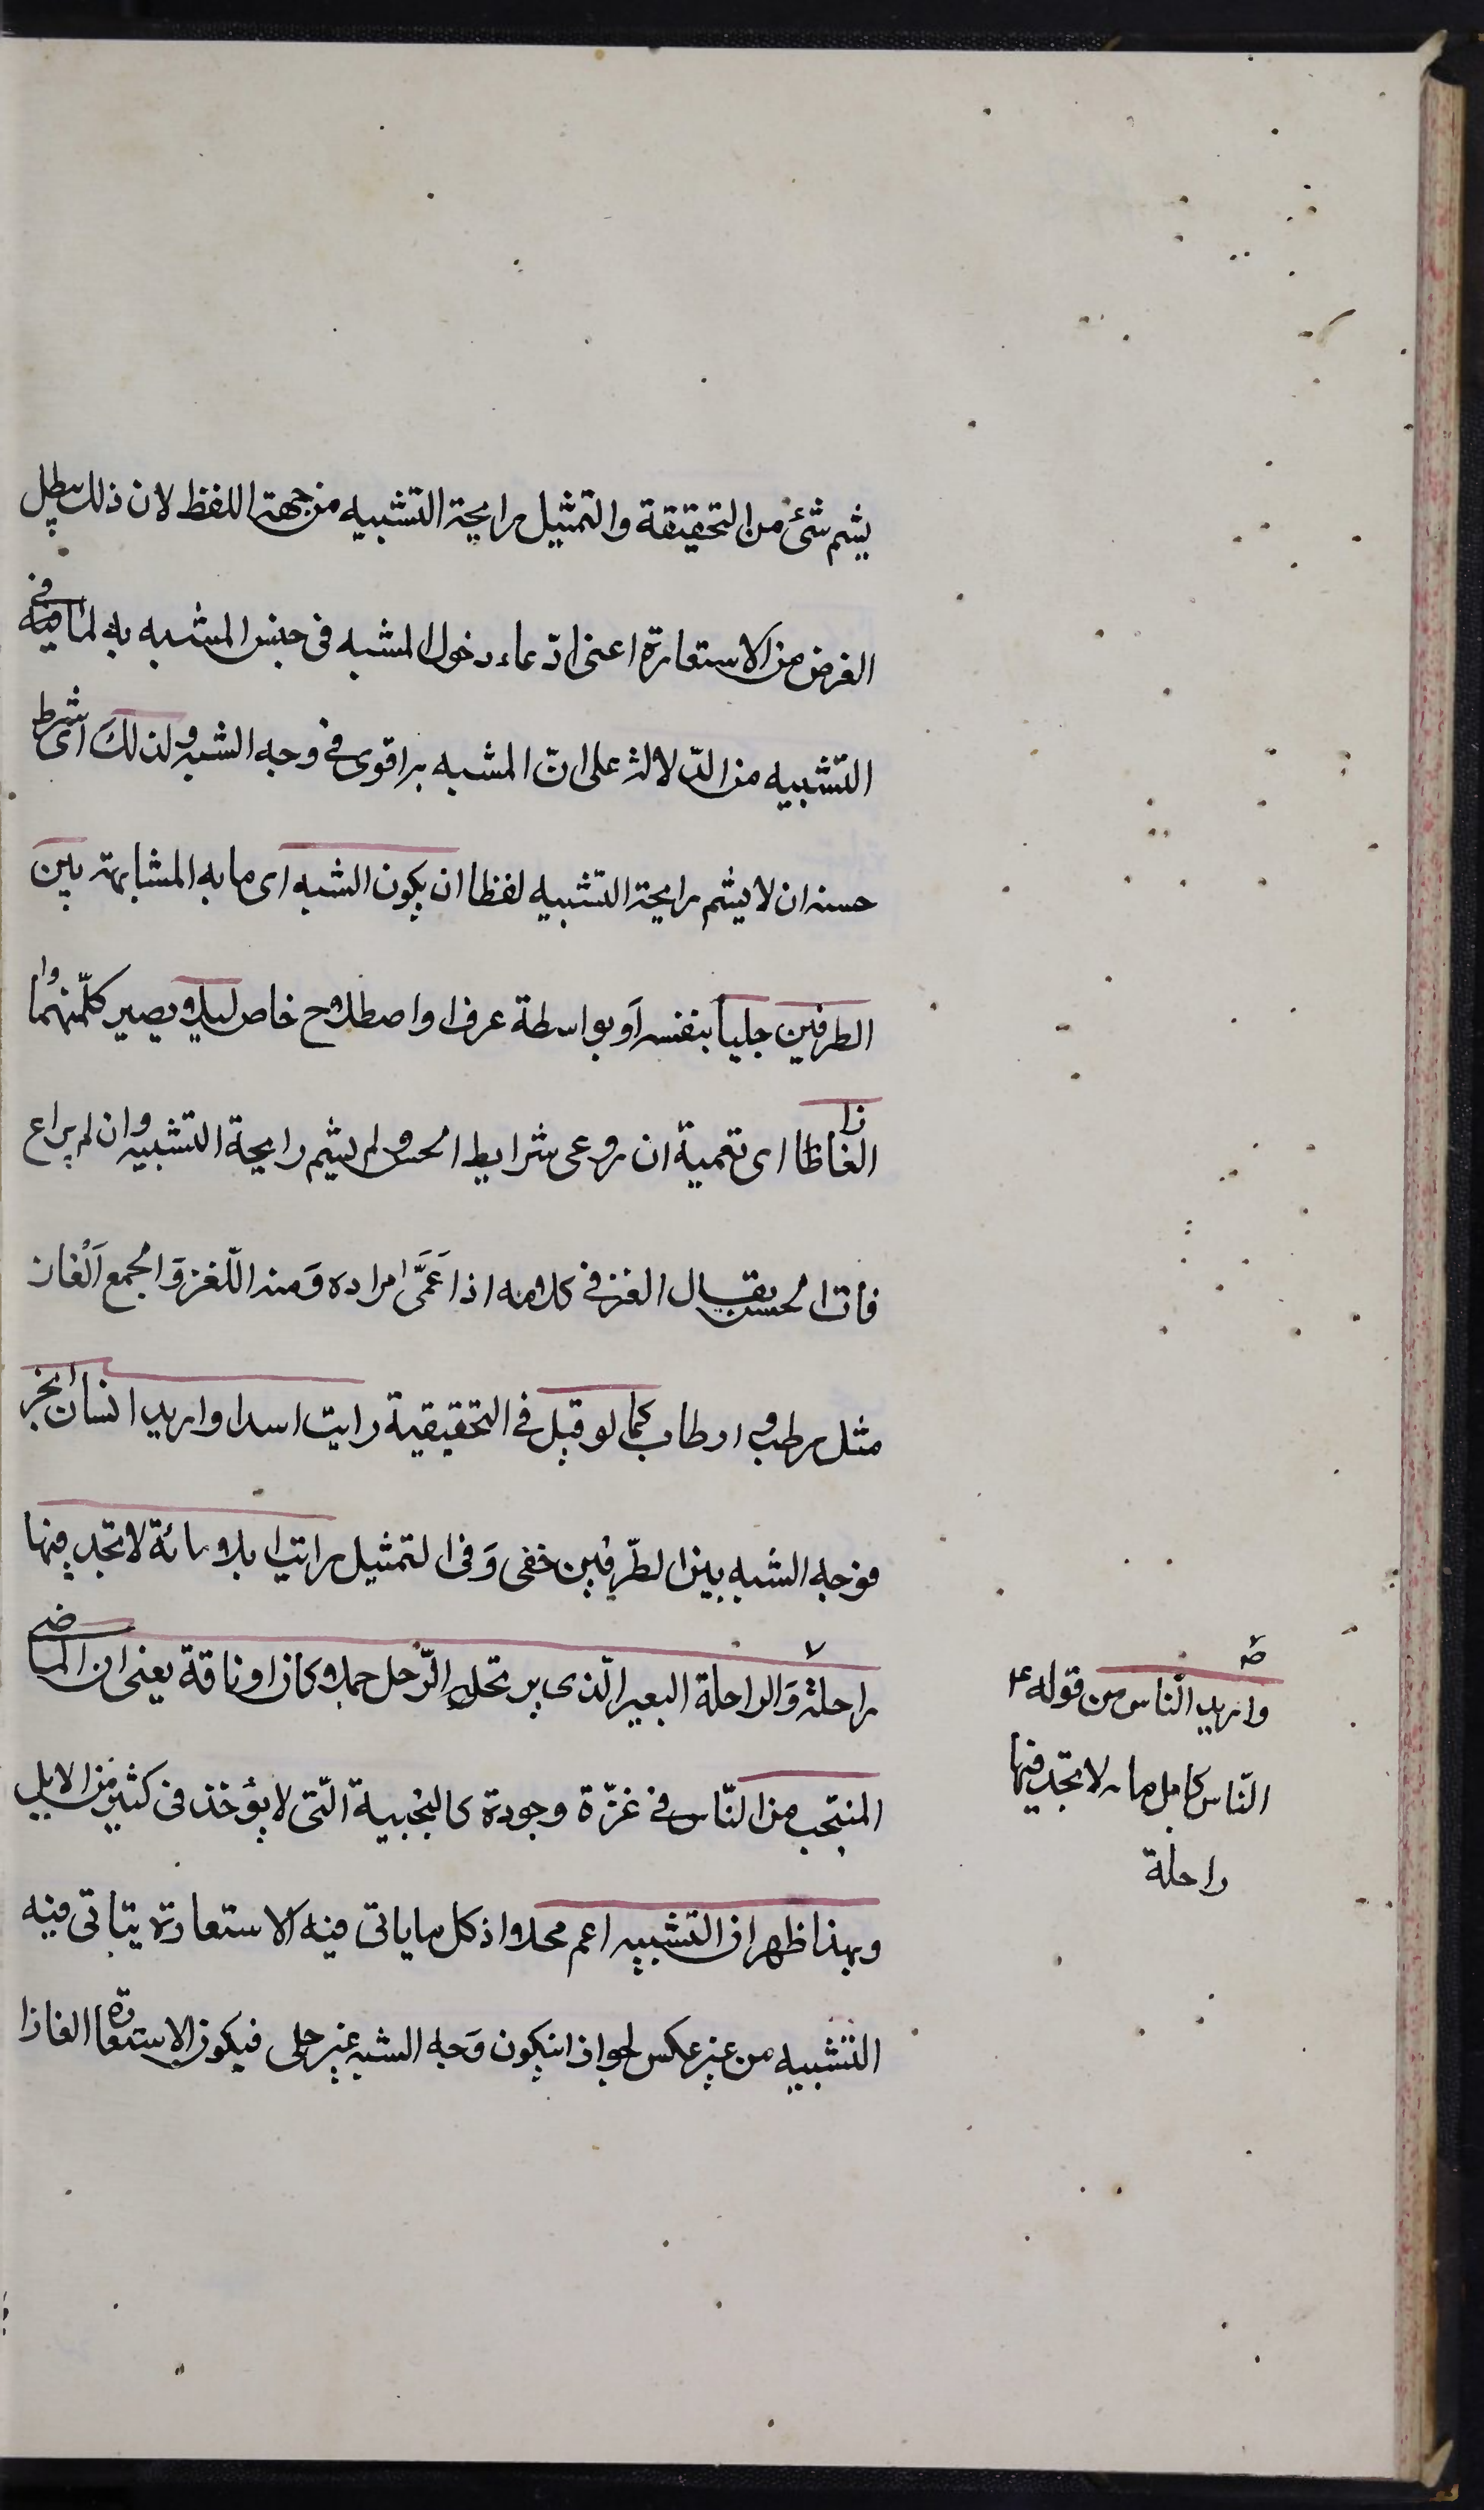 يشم شئ من التحقيقة والتمثيل رايحة التشبيه من جهة اللفظ لان ذلك يبطل
الغرض من الاستعارة اعنى ادّعاء دخول المشبه فى جنس المشبه به لما فيه فى
التشبيه من الدّلالة على انّ المشبه به اقوى فى وجه الشبه ولذلك اى شرط
حسنه ان لا يشم رايحة التشبيه لفظا ان يكون الشبه اى ما به المشابهة بين
الطرفين جليا بنفسه او بواسطة عرف او اصطلاح خاص ليلا و يصير كلّ منهما
الغاظا اى تعمية ان روعى شرايط الحسن و لم يشم رايحة التشبيه وان لم يراع
فات الحسن يقال الغز فى كلامه اذا عَمَّى مراده وَمنه اللّغز وَالجمع اَلْغاز
مثل رطب و ارطاب كما لو قيل فى التحقيقية رايت اسدا واريد انسان ابخر
فوجه الشبه بين الطّرفين خفى وَفى التمثيل رايت ابلا مائة لا تجد فيها
راحلة وَالراحلة البعير الّذى يرتحله الرّحل جملا كان او ناقة يعنى ان المرضى
المنتجب من النّاس فى عزّة وجودة كالنجيبة الّتى لا يؤخذ فى كثير من الابل
وبهذا ظهر ان التشبيه اعم محلا اذ كل ما ياتى فيه الاستعارة يتاتى فيه
التشبيه من غير عكس لجواز ان يكون وَجه الشبه غير جلى فيكون الاستعارة الغازا
واريد النّاس من قوله ع
النّاس كابل مايه لا تجد فيها
راحلة